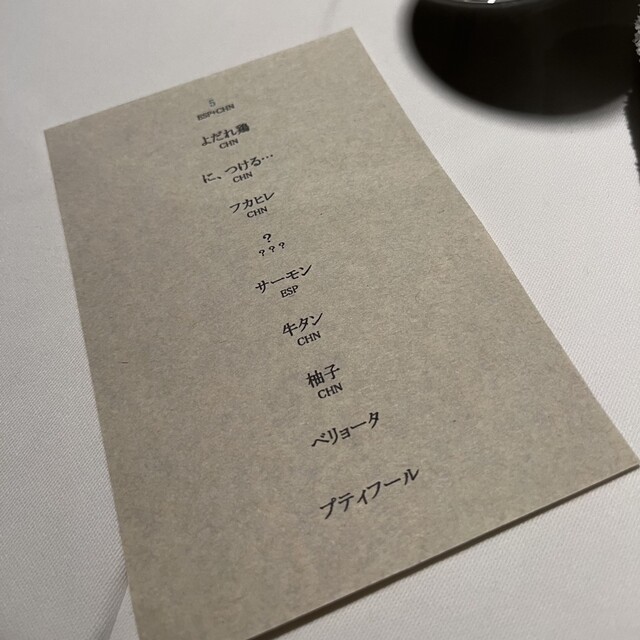 5
ESP×CHN
よだれ鶏
CHN
に、つける…
CHN
フカヒレ
CHN
?
???
サーモン
ESP
牛タン
CHN
柚子
CHN
ベリョータ
プティフール